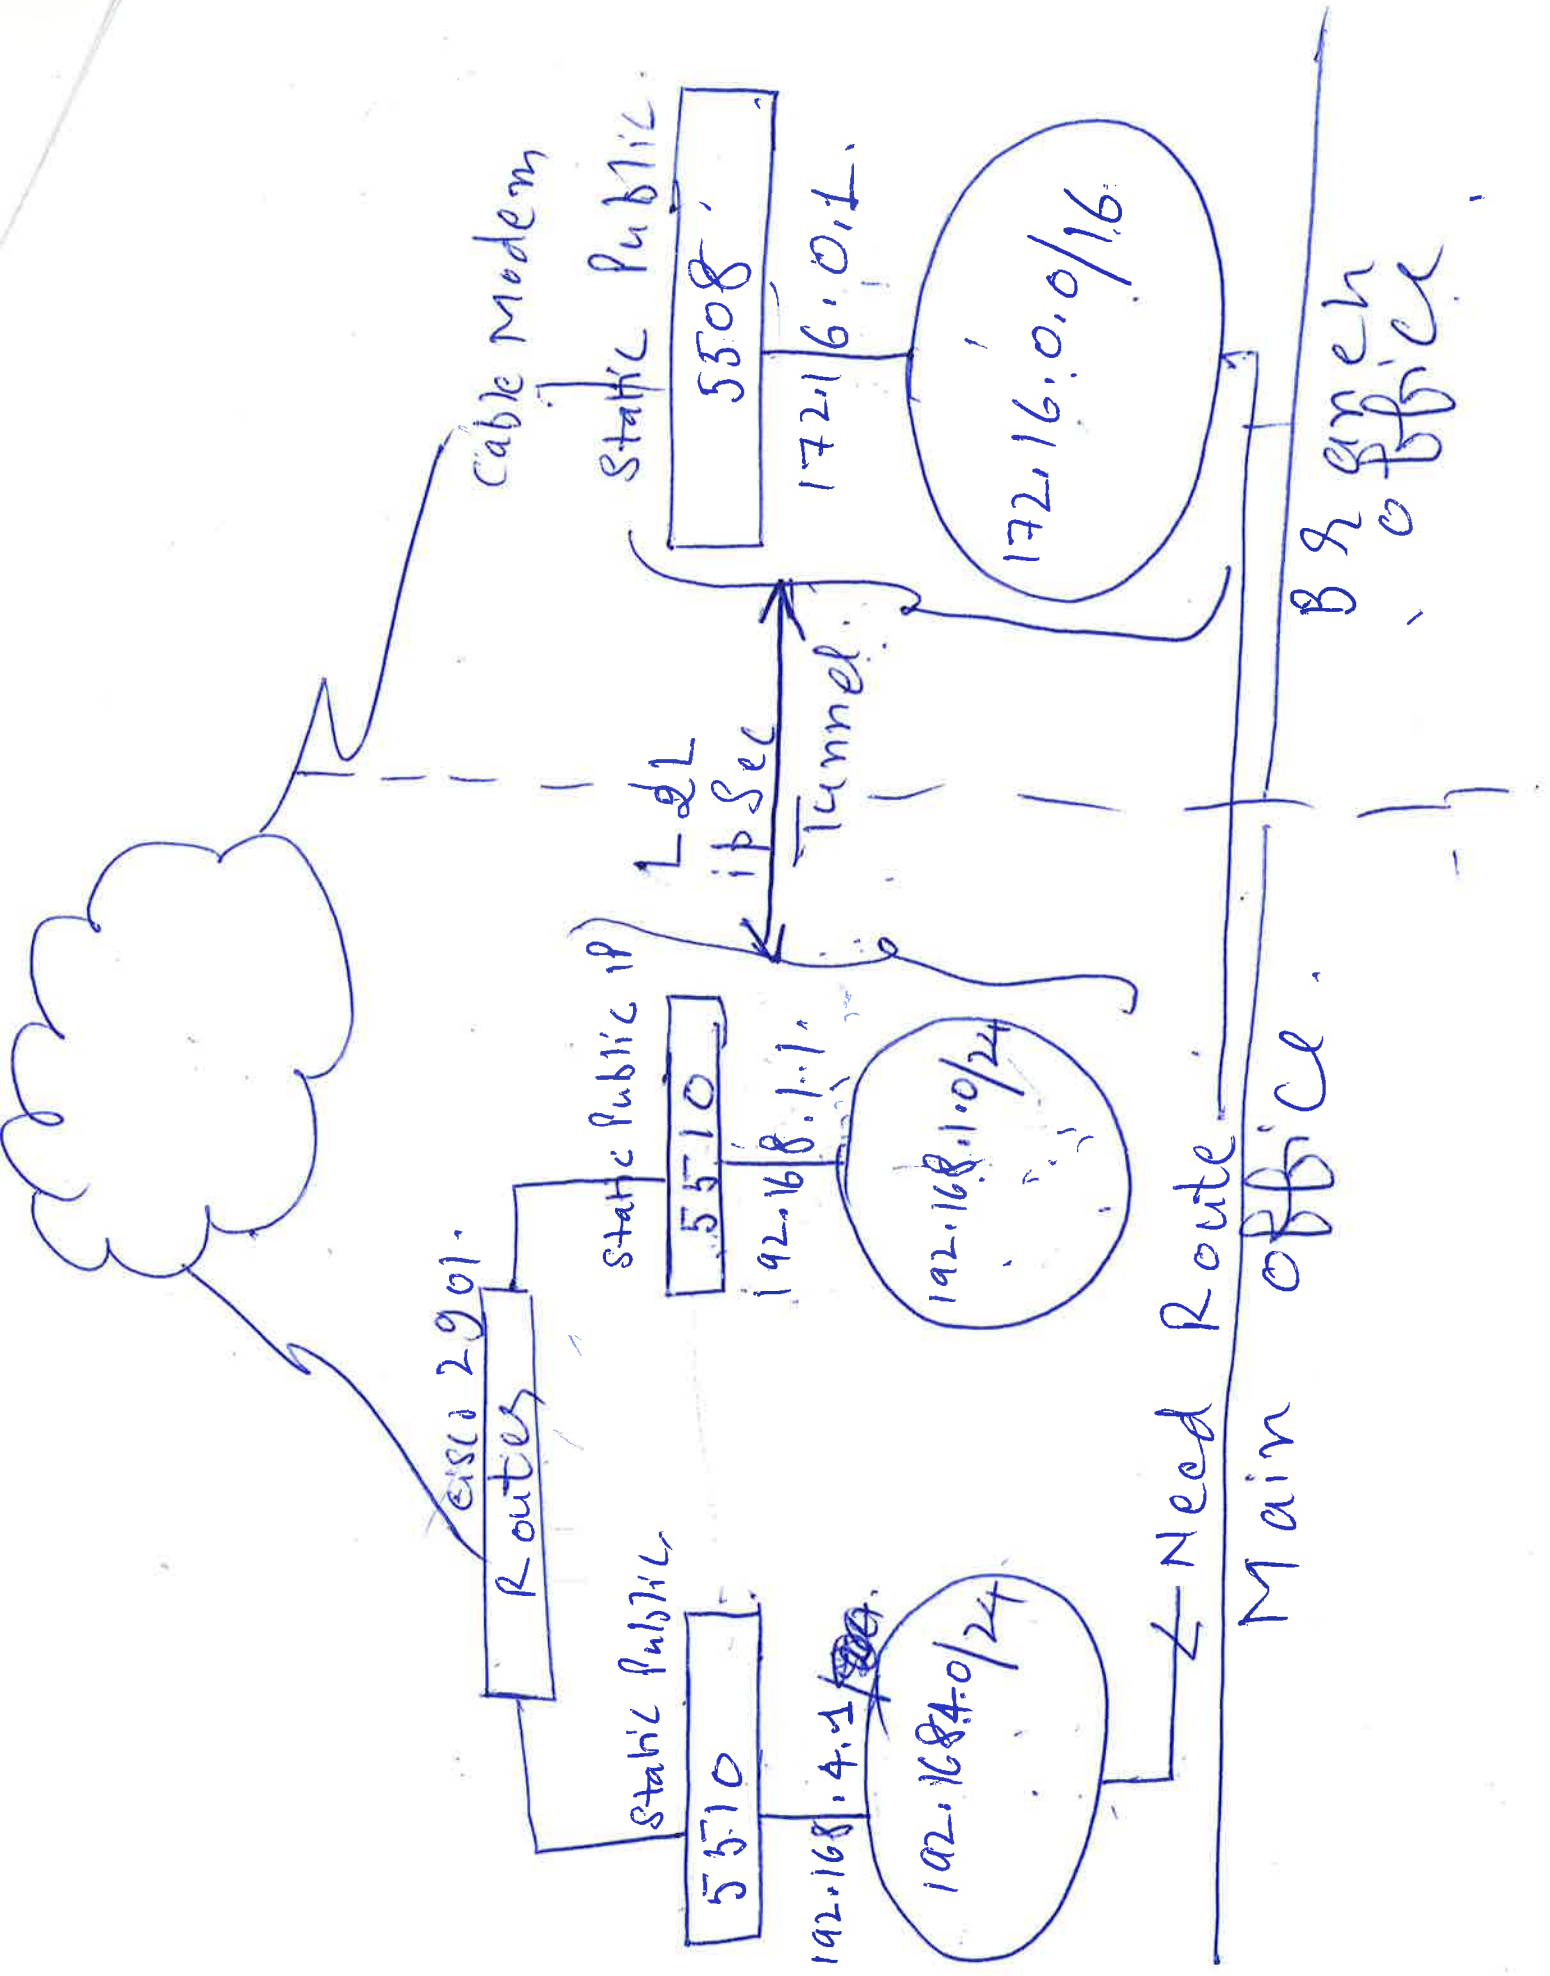 Cisco 2901.
Router
Cable Modem
Static Public
5510
192.168.4.1
192.168.4.0/24
Static Public IP
5510
192.168.1.1.
192.168.1.0/24
L2L
ipsec
Tunnel.
Static Public
5508
172.16.0.1.
172.16.0.0/16
Need Route
Main office.
Branch
office